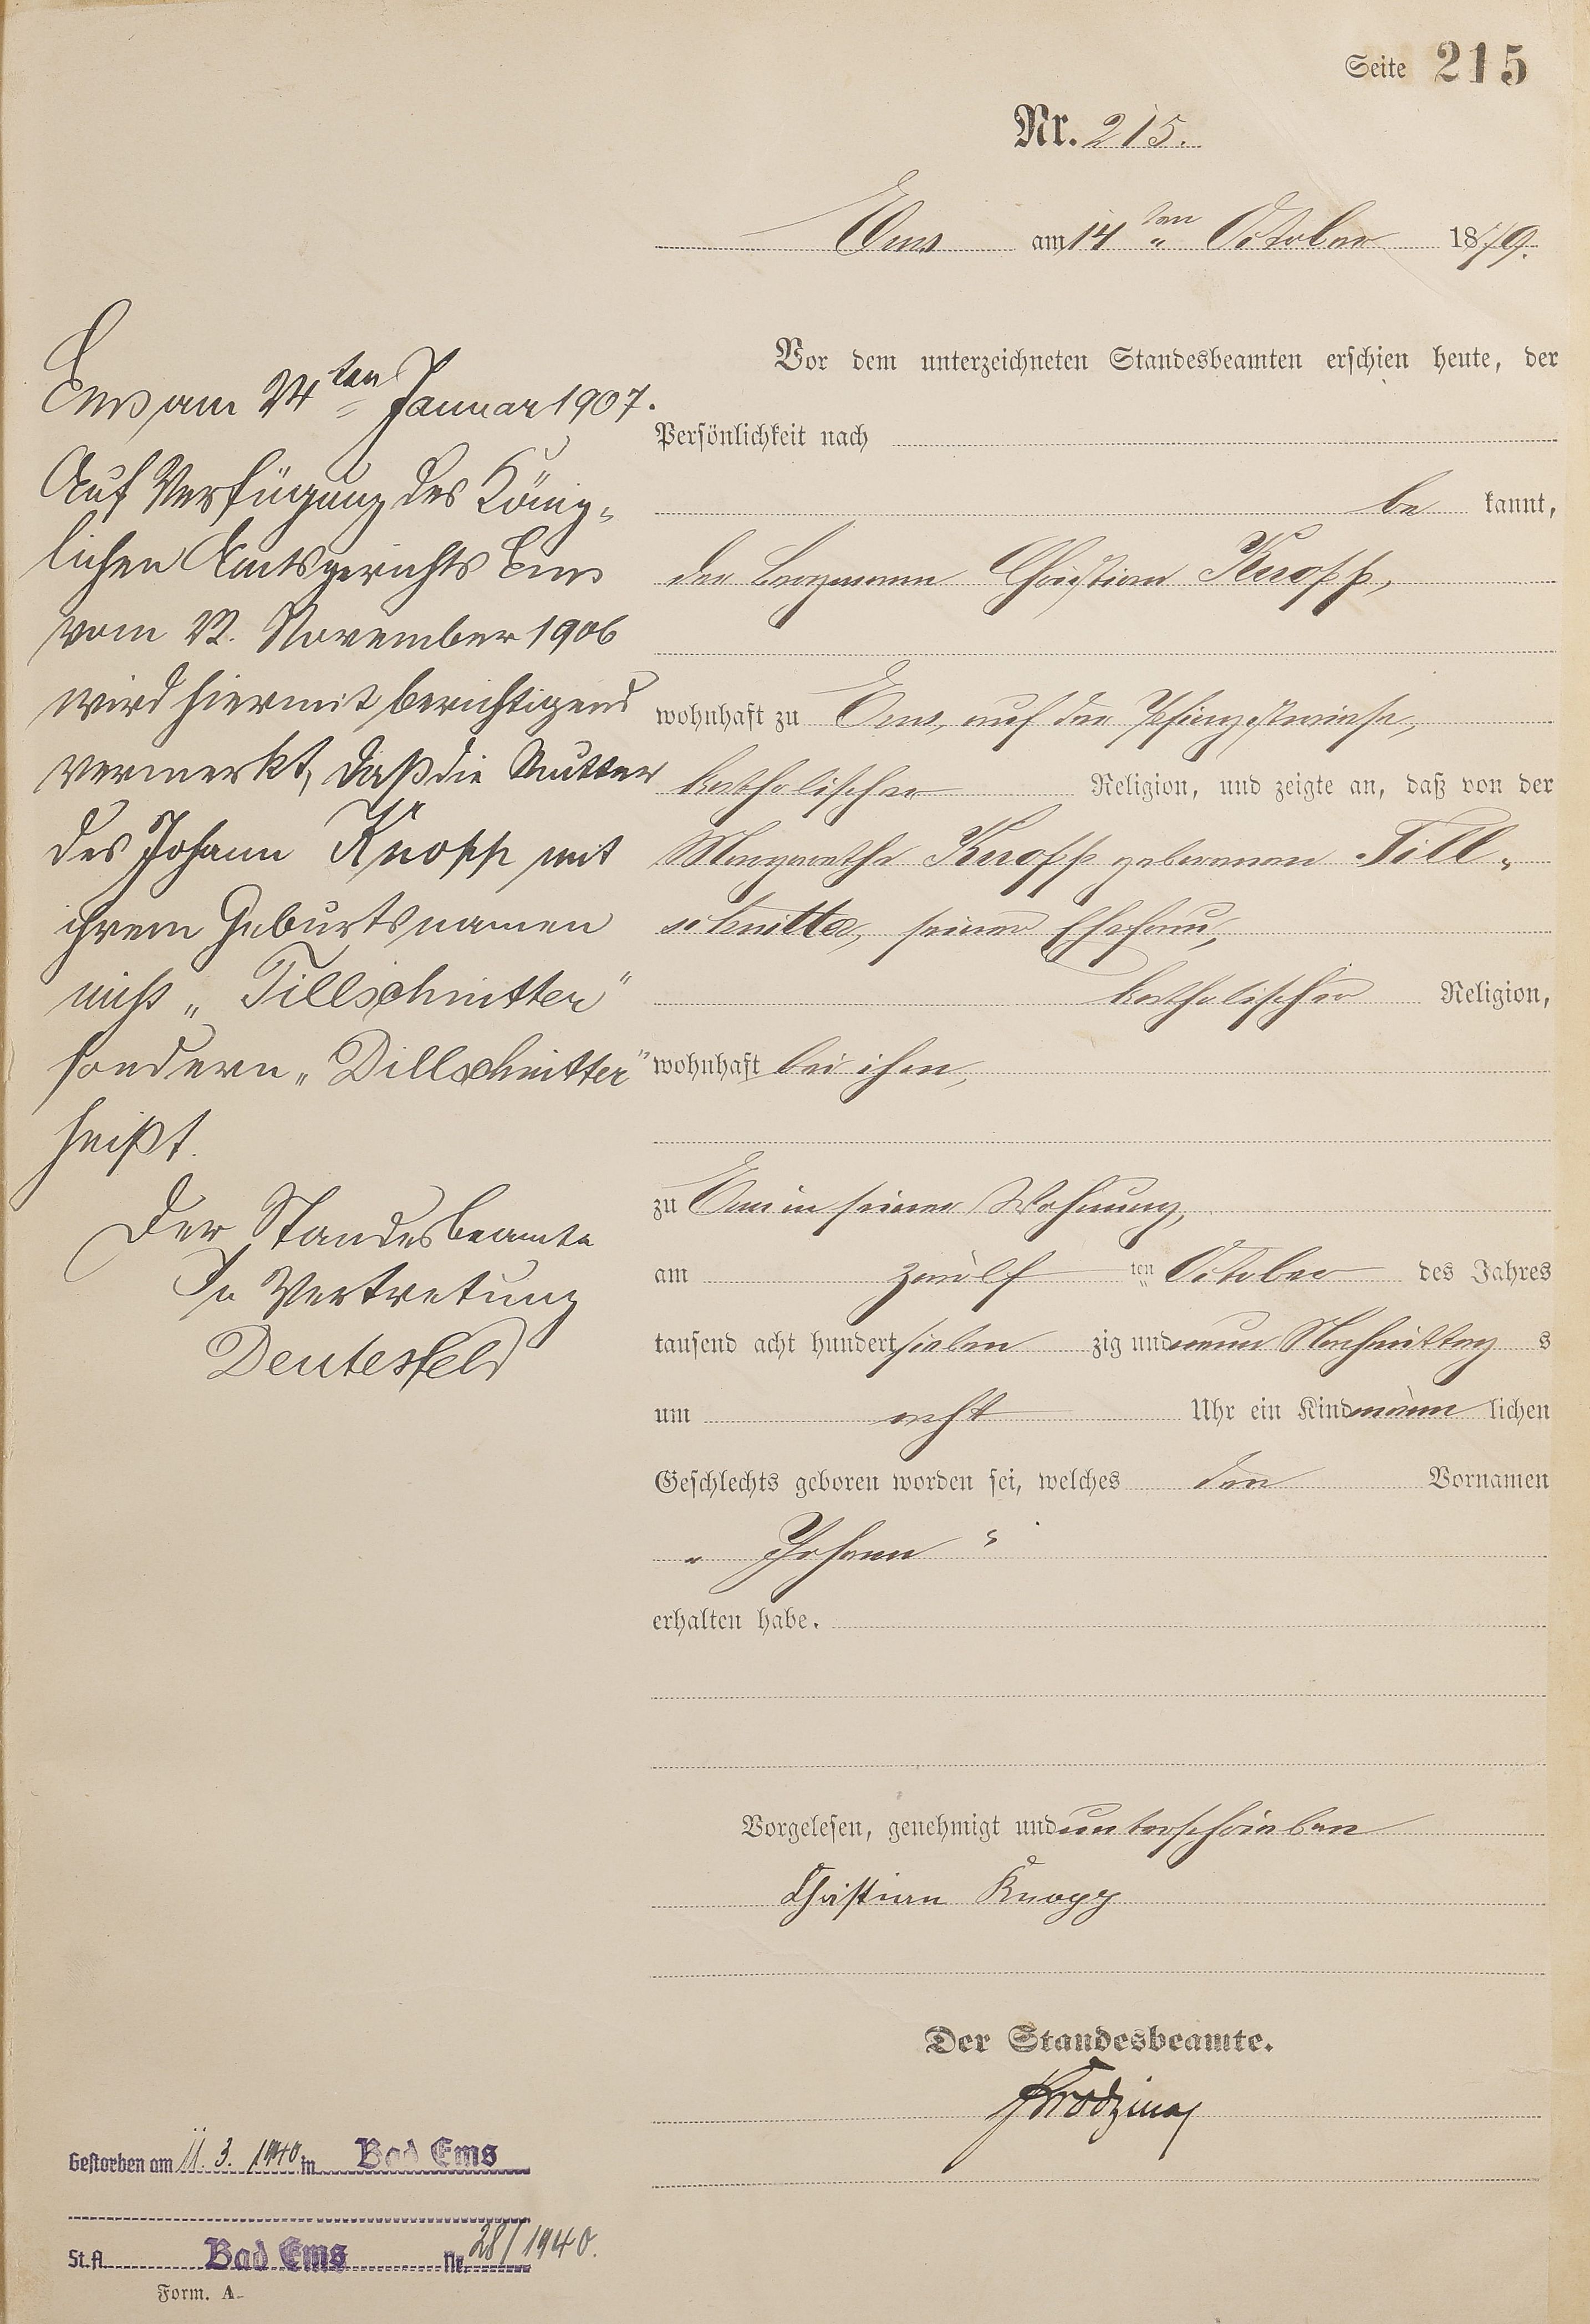 Seite 215
Nr. 215.
Ems am 14ten October 1879.
Vor dem unterzeichneten Standesbeamten erschien heute, der
Persönlichkeit nach
be kannt,
der Bergmann Christian Knopp,
wohnhaft zu Ems, auf der Pfingstwiese,
katholischer Religion, und zeigte an, daß von der
Margarethe Knopp geborenen Till-
schnitter, seiner Ehefrau,
katholischer Religion,
wohnhaft bei ihm,
zu Ems in seiner Wohnung,
am zwölf ten October des Jahres
tausend acht hundert sieben zig und neun Nachmittag s
um acht Uhr ein Kind männ lichen
Geschlechts geboren worden sei, welches den Vornamen
„Johann“
erhalten habe.
Vorgelesen, genehmigt und unterschrieben
Christian Knopp
Der Standesbeamte.
Ems am 24ten Januar 1907.
Auf Verfügung des König-
lichen Amtsgerichts Ems
vom November 1906
wird hiermit berichtigend
vermerkt, daß die Mutter
des Johann Knopp mit
ihrem Geburtsnamen
nicht „Tillschnitter“
sondern „Dillschnitter“
heißt.
Der Standesbeamte
In Vertretung
Deutesfeld
Gestorben am 11. 3. 1940 in Bad Ems
St. A. Bad Ems Nr. 28/1940.
Form. A.